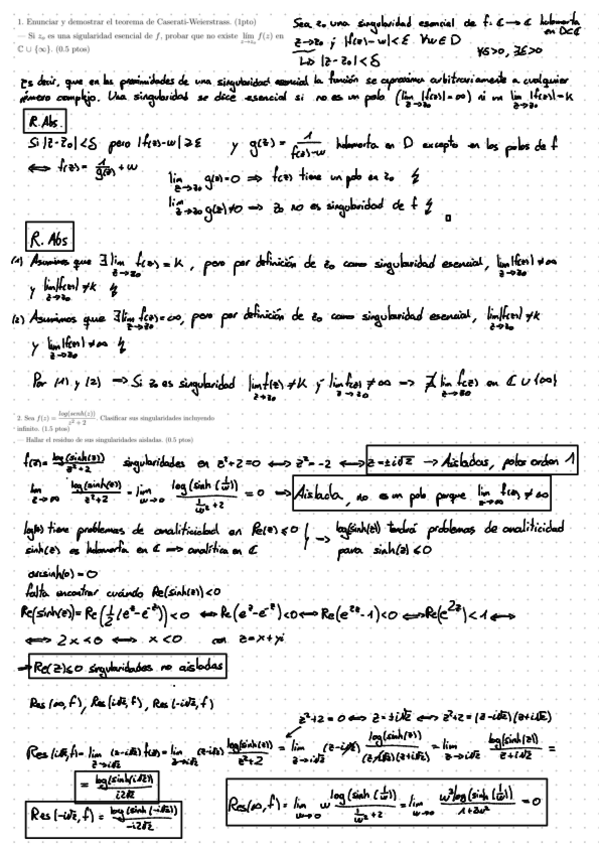 1. Enunciar y demostrar el teorema de Caserati-Weierstrass. (1pto)
— Si z₀ es una sigularidad esencial de f, probar que no existe lim_{z→z₀} f(z) en
ℂ ∪ {∞}. (0.5 ptos)
Sea z₀ una singularidad esencial de f: ℂ → ℂ holomorfa en D⊂ℂ
z→z₀ ; |f(z)-w|<ε ∀w∈D
↳ |z-z₀|<δ ∀δ>0, ∃ε>0
Es decir, que en las proximidades de una singularidad esencial la función se aproxima arbitrariamente a cualquier
número complejo. Una singularidad se dice esencial si no es un polo (lim_{z→z₀} |f(z)|=∞) ni un lim_{z→z₀} |f(z)|=K
R.Abs.
Si |z-z₀|<δ pero |f(z)-w|≥ε y g(z) = 1/(f(z)-w) holomorfa en D excepto en los polos de f
⟺ f(z) = 1/g(z) + w
lim_{z→z₀} g(z)=0 ⟹ f(z) tiene un polo en z₀ ↯
lim_{z→z₀} g(z)≠0 ⟹ z₀ no es singularidad de f ↯ □
R. Abs
(1) Asumimos que ∃ lim_{z→z₀} f(z) = K, pero por definición de z₀ como singularidad esencial, lim_{z→z₀} |f(z)| ≠ ∞
y lim_{z→z₀} |f(z)| ≠ K ↯
(2) Asumimos que ∃ lim_{z→z₀} f(z) = ∞, pero por definición de z₀ como singularidad esencial, lim_{z→z₀} |f(z)| ≠ K
y lim_{z→z₀} |f(z)| ≠ ∞ ↯
Por (1) y (2) ⟹ Si z₀ es singularidad lim_{z→z₀} f(z) ≠ K y lim_{z→z₀} f(z) ≠ ∞ ⟹ ∄ lim f(z) en ℂ ∪ {∞}
2. Sea f(z) = log(senh(z))/(z²+2). Clasificar sus singularidades incluyendo
infinito. (1.5 ptos)
— Hallar el residuo de sus singularidades aisladas. (0.5 ptos)
f(z) = log(sinh(z))/(z²+2) singularidades en z²+2=0 ⟺ z²=-2 ⟺ z=±i√2 → Aisladas, polos orden 1
lim_{z→∞} log(sinh(z))/(z²+2) = lim_{w→0} log(sinh(1/w))/(1/w²+2) = 0 ⟹ Aislada, no es un polo porque lim_{z→∞} f(z) ≠ ∞
log(z) tiene problemas de analiticidad en Re(z)≤0
sinh(z) es holomorfa en ℂ ⟹ analítica en ℂ
→ log(sinh(z)) tendrá problemas de analiticidad
para sinh(z)≤0
arcsinh(0) = 0
falta encontrar cuándo Re(sinh(z))<0
Re(sinh(z)) = Re(1/2(e^z-e^{-z})) < 0 ⟺ Re(e^z-e^{-z})<0 ⟺ Re(e^{2z}-1)<0 ⟺ Re(e^{2z})<1 ⟺
⟺ 2x<0 ⟺ x<0 con z=x+yi
⟹ Re(z)≤0 singularidades no aisladas
Res(∞,f), Res(i√2,f), Res(-i√2,f)
z²+2=0 ⟺ z=±i√2 ⟺ z²+2=(z-i√2)(z+i√2)
Res(i√2,f) = lim_{z→i√2} (z-i√2) f(z) = lim_{z→i√2} (z-i√2) log(sinh(z))/(z²+2) = lim_{z→i√2} (z-i√2) log(sinh(z))/((z-i√2)(z+i√2)) = lim_{z→i√2} log(sinh(z))/(z+i√2) =
= log(sinh(i√2))/(i2√2)
Res(-i√2,f) = log(sinh(-i√2))/(-i2√2)
Res(∞,f) = lim_{w→0} w log(sinh(1/w))/(1/w²+2) = lim_{w→0} w³log(sinh(1/w))/(1+2w²) = 0